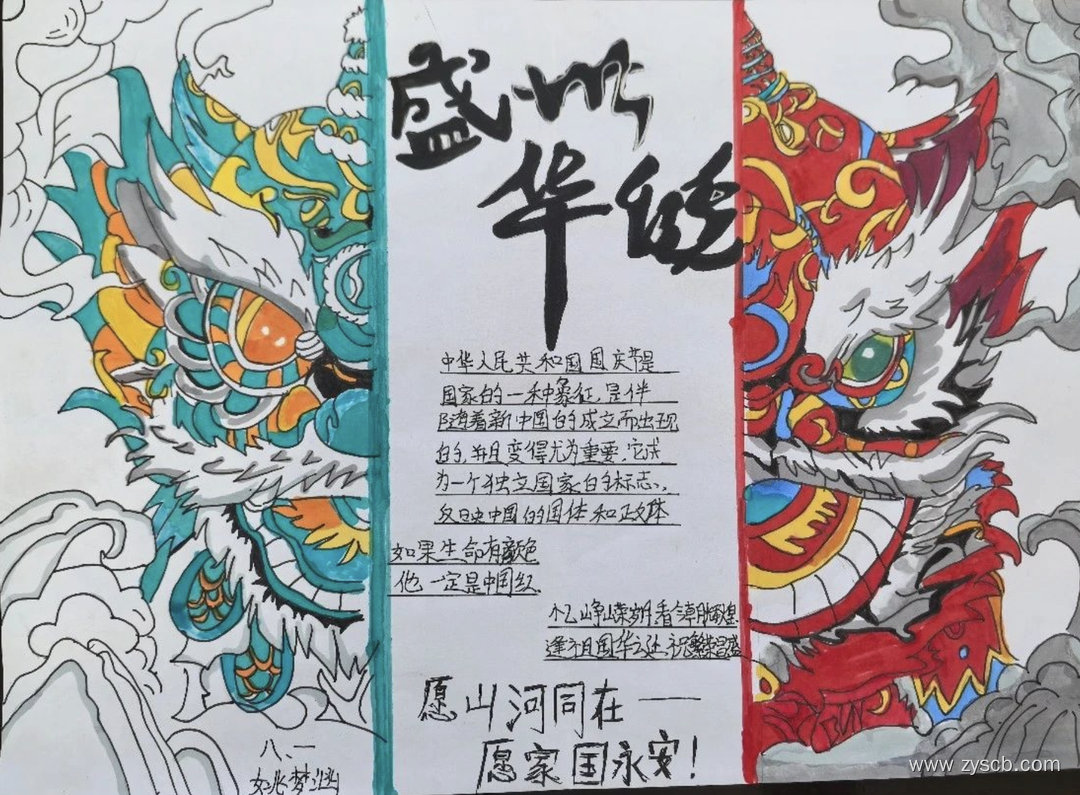 盛世
华诞
中华人民共和国国庆节是
国家的一种象征,是伴
随着新中国的成立而出现
的,并且变得尤为重要,它成
为一个独立国家的标志,
反映中国的国体和政体
如果生命有颜色
他一定是中国红
忆峥嵘岁月,看今朝辉煌
逢祖国华诞,祝繁荣昌盛
愿山河同在——
愿家国永安!
八、一
姚梦
www.zyscb.com